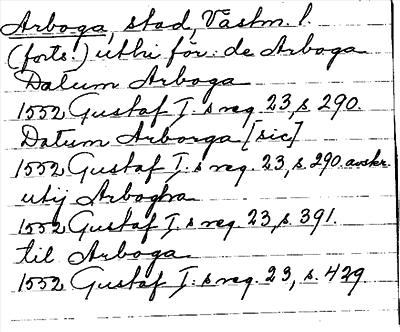 Arboga, stad, Västm. l.
(forts.) uthi för: de Arboga
Datum Arboga
1552 Gustaf I:s reg. 23, s. 290.
Datum Arborga [sic]
1552 Gustaf I:s reg. 23, s. 290. avskr.
utij Arbogha
1552 Gustaf I:s reg. 23, s. 391.
til Arboga
1552 Gustaf I:s reg. 23, s. 429